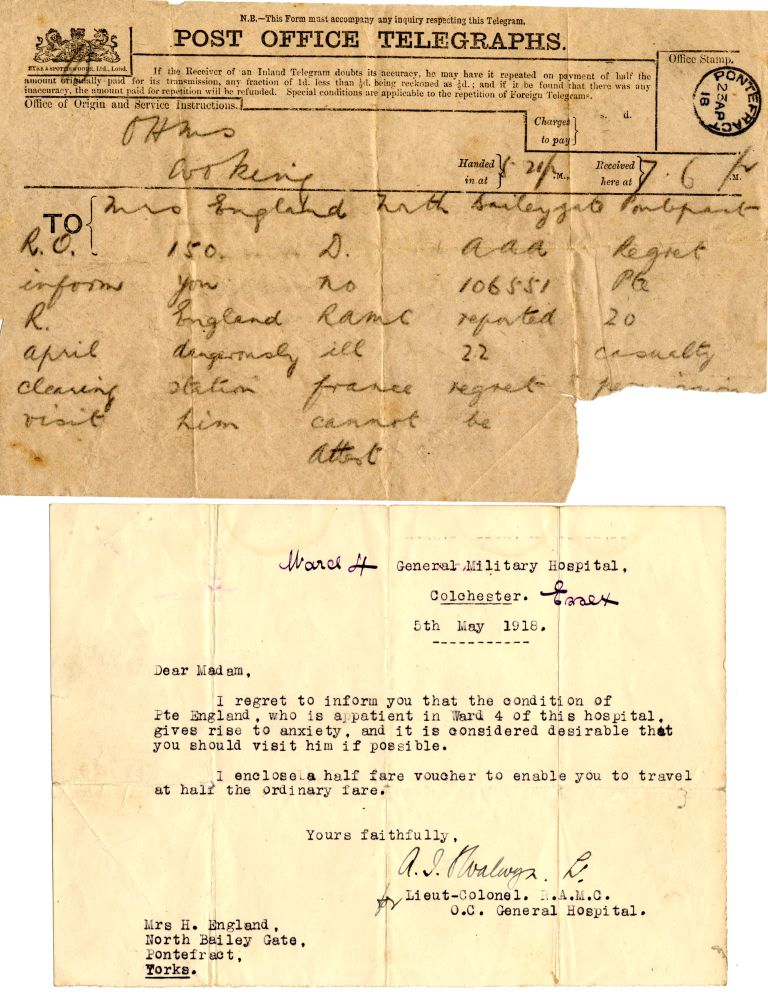 N.B.—This Form must accompany any inquiry respecting this Telegram.
POST OFFICE TELEGRAPHS.
If the Receiver of an Inland Telegram doubts its accuracy, he may have it repeated on payment of half the
amount originally paid for its transmission, any fraction of 1d. less than ½d. being reckoned as ½d.; and if it be found that there was any
inaccuracy, the amount paid for repetition will be refunded. Special conditions are applicable to the repetition of Foreign Telegrams.
Office of Origin and Service Instructions.
Office Stamp.
PONTEFRACT
23 AP
18
Charges
to pay
s. d.
OHMS
Woking
Handed
in at
5 20/ .M.,
Received
here at
7. 6 .M.
TO Mrs England North Baileygate Pontefract
R.O. 150. D. AAA Regret
inform you no 106551 Pte
R. England RAMC reported 20
april dangerously ill 22 casualty
clearing station france regret permission
visit him cannot be
Ward 4 General Military Hospital,
Colchester. Essex
5th May 1918.
-----------
Dear Madam,
I regret to inform you that the condition of
Pte England, who is appatient in Ward 4 of this hospital,
gives rise to anxiety, and it is considered desirable that
you should visit him if possible.
I enclose a half fare voucher to enable you to travel
at half the ordinary fare.
Yours faithfully,
for Lieut-Colonel. R.A.M.C.
O.C. General Hospital.
Mrs H. England,
North Bailey Gate,
Pontefract,
Yorks.